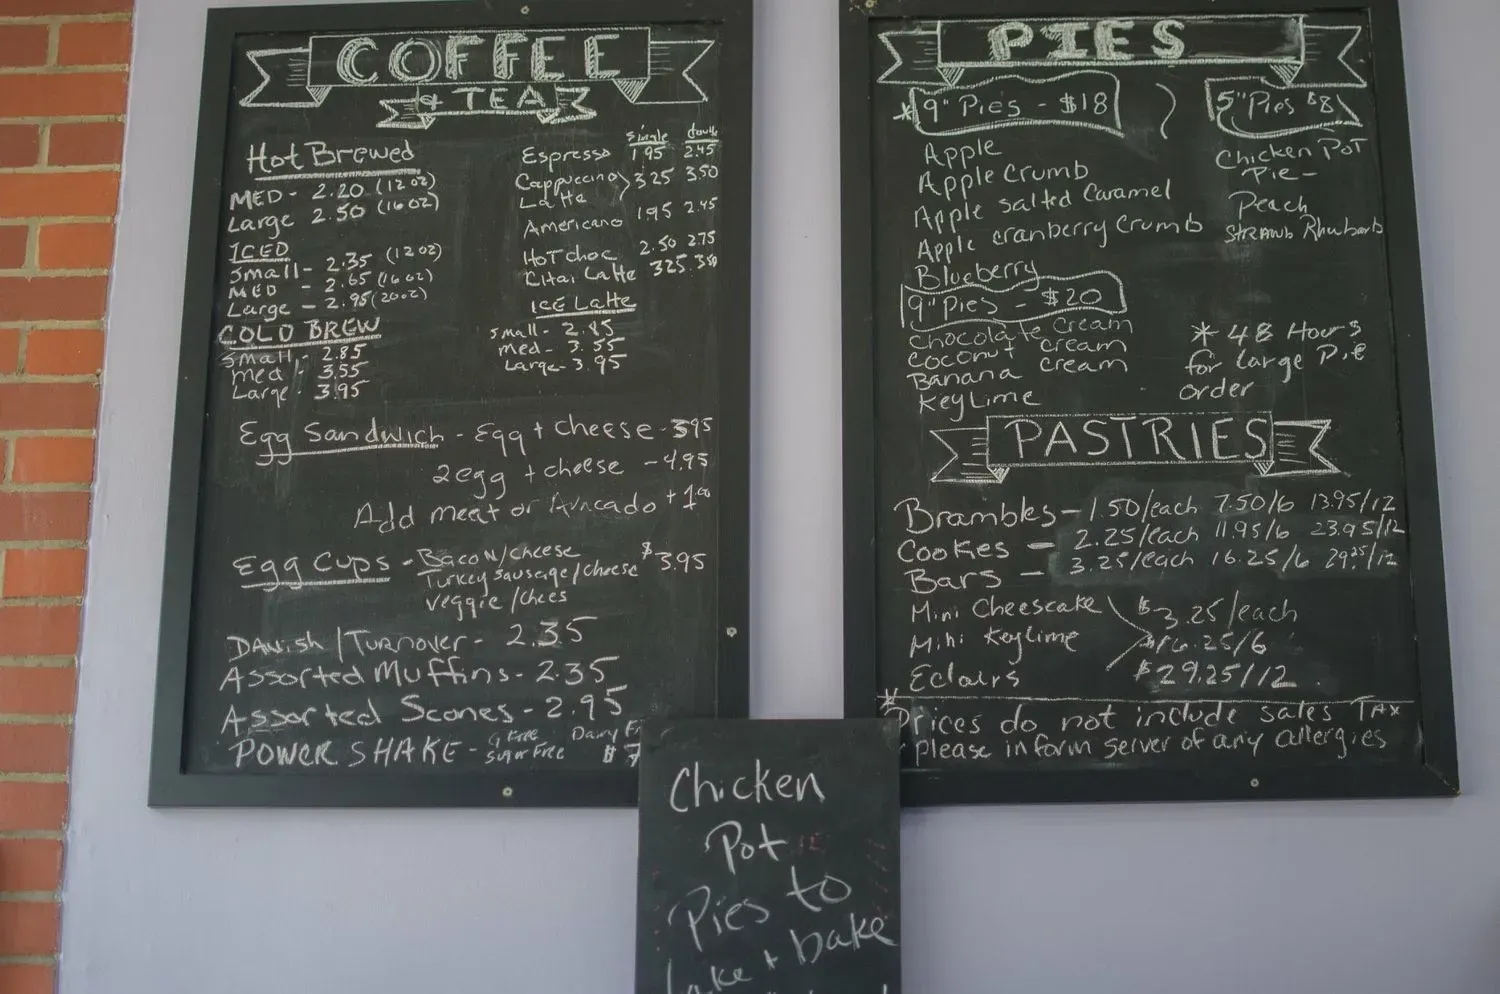 COFFEE
& TEA
Hot Brewed
MED - 2.20 (12 oz)
Large 2.50 (16 oz)
ICED
Small - 2.35 (12 oz)
MED - 2.65 (16 oz)
Large - 2.95 (20 oz)
COLD BREW
small - 2.85
med - 3.55
Large - 3.95
single double
Espresso 1.95 2.45
Cappuccino 3.25 3.50
Latte
Americano 1.95 2.45
HOT choc 2.50 2.75
Chai Latte 3.25 3.50
ICE Latte
small - 2.85
med - 3.55
Large - 3.95
Egg Sandwich - Egg + cheese - 3.95
2 egg + cheese - 4.95
Add meat or Avacado + 1.00
Egg Cups - Bacon/cheese $3.95
Turkey sausage/cheese
veggie/chees
Danish/Turnover - 2.35
Assorted Muffins - 2.35
Assorted Scones - 2.95
POWER SHAKE - G Free Dairy
Sugar Free $
PIES
* 9" Pies - $18
Apple
Apple Crumb
Apple Salted Caramel
Apple cranberry Crumb
Blueberry
9" Pies - $20
Chocolate Cream
Coconut Cream
Banana Cream
Key Lime
5" Pies $8
Chicken Pot
Pie -
Peach
STRAWB Rhubarb
* 48 Hours
for Large Pie
order
PASTRIES
Brambles - 1.50/each 7.50/6 13.95/12
Cookies - 2.25/each 11.95/6 23.95/12
Bars - 3.25/each 16.25/6 29.25/12
Mini Cheescake $3.25/each
Mini Keylime $16.25/6
Eclairs $29.25/12
* Prices do not include sales Tax
please inform server of any allergies
Chicken
Pot
Pies to
take + bake